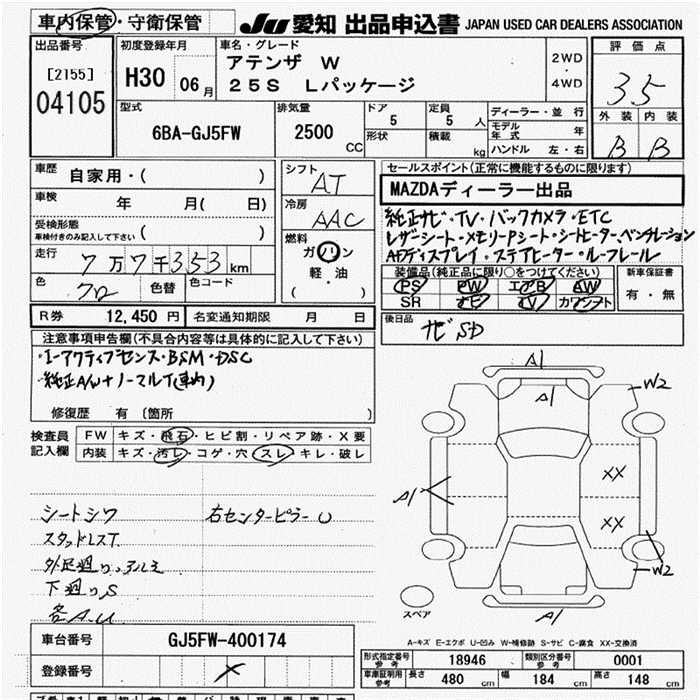 車内保管・守衛保管
JU 愛知 出品申込書 JAPAN USED CAR DEALERS ASSOCIATION
出品番号
[2155]
04105
初度登録年月
H30 06月
車名・グレード
アテンザ W
25S Lパッケージ
2WD
・
4WD
評価点
3.5
外装 内装
B B
型式
6BA-GJ5FW
排気量
2500 CC
ドア
5
形状
定員
5 人
積載
kg
ディーラー・並行
モデル年式 年
ハンドル 左・右
車歴
自家用・( )
車検
年 月( 日)
受検形態
車検付きのみ記入して下さい ( )
走行
7万7千353km
色
クロ
色替
色コード
シフト
AT
冷房
AAC
燃料
ガソリン
軽・油
( )
セールスポイント(正常に機能するものに限ります)
MAZDAディーラー出品
純正ナビ・TV・バックカメラ・ETC
レザーシート・メモリーPシート・シートヒーター、ベンチレーション
ADディスプレイ・ステアヒーター・ルーフレール
装備品(純正品に限り○をつけてください)
PS PW エアB AW
SR ナビ TV カワシート
新車保証書
有・無
R券 12,450円
名変通知期限 月 日
後日品
ナビSD
注意事項申告欄(不具合内容等は具体的に記入して下さい)
・i-アクティブセンス・BSM・DSC
・純正A/W+ノーマルT(車内)
修復歴 有 (箇所 )
検査員
記入欄
FW キズ・飛石・ヒビ割・リペア跡・X要
内装 キズ・汚レ・コゲ・穴・スレ・キレ・破レ
シートシワ 右センターピラーU
スタッドレスT.
下廻りS
各A.U
A1
A1
W2
A1
XX
XX
W2
A1
スペア
A-キズ E-エクボ U-凹み W-補修跡 S-サビ C-腐食 XX-交換済
車台番号 GJ5FW-400174
登録番号
形式指定番号 参考 18946 類別区分番号 参考 0001
車庫証明用 参考 長さ 480 cm 幅 184 cm 高さ 148 cm